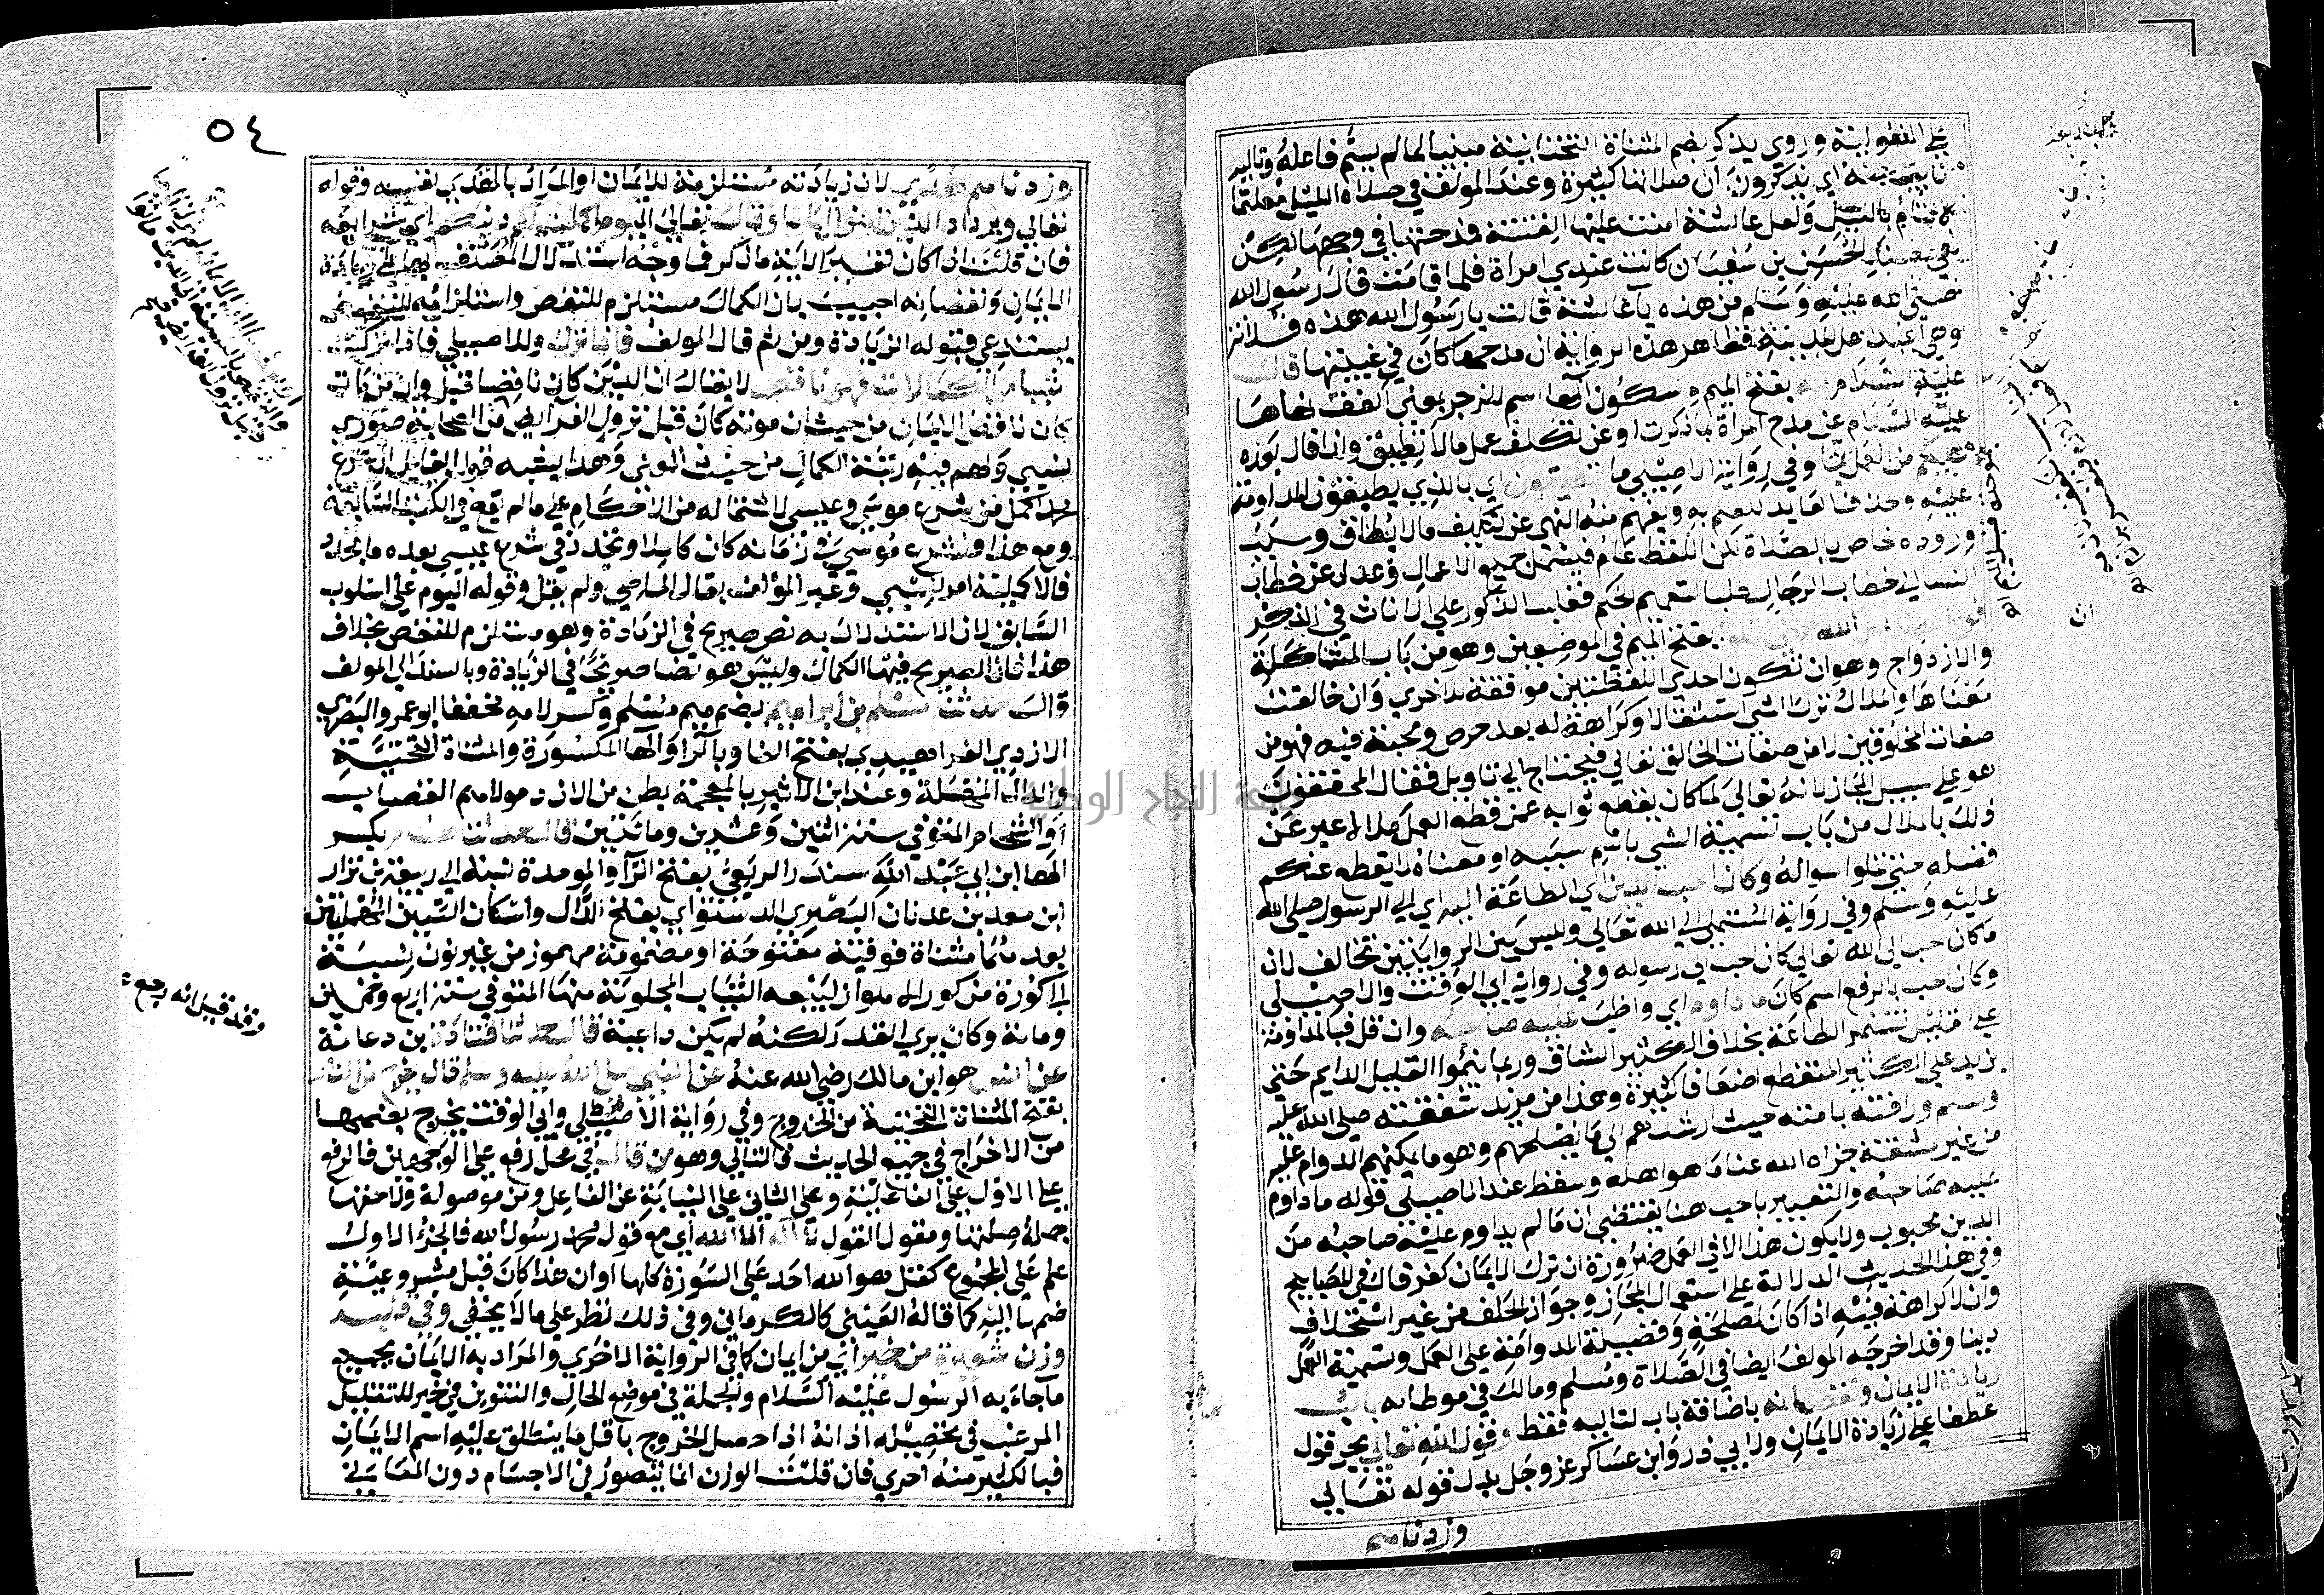 علي المفعولية وروي يذكر بضم المثناة التحتانية مبنيا لما لم يسم فاعله وتاليه
نائب عنه اي يذكرون ان صلاتها كثيرة وعند المولف في صلاة الليل معلقا
لا تنام بالليل ولعل عائشة امنت عليها الفتنة فمدحتها في وجهها لكن
في مسند الحسن بن سفيان كانت عندي امراة فلما قامت قال رسول الله
صلي الله عليه وسلم من هذه يا عائشة قالت يا رسول الله هذه فلانة
وهي اعبد اهل المدينة فظاهر هذه الرواية ان مدحها كان في غيبتها قال
عليه السلام مه بفتح الميم وسكون الها اسم للزجر بمعني اكفف نهاها
عليه السلام عن مدح المراة بما ذكرت او عن تكلف عمل ما لا يطيق ولذا قال بعده
عليكم من العمل بما وفي رواية الاصيلي ما تطيقون اي بالذي تطيقون المداومة
عليه وحذف العايد للعلم به ويفهم منه النهي عن تكليف ما لا يطاق وسبب
وروده خاص بالصلاة لكن اللفظ عام فيشمل جميع الاعمال وعدل عن خطاب
النسا الي خطاب الرجال طلبا لتعميم الحكم فغلب الذكور علي الاناث في الذكر
فوالله لا يمل الله حتي تملوا بفتح الميم في الموضعين وهو من باب المشاكلة
والازدواج وهو ان تكون احدي اللفظتين موافقة للاخري وان خالفت
معناها والملال ترك الشي استثقالا وكراهة له بعد حرص ومحبة فيه فهو من
صفات المخلوقين لا من صفات الخالق تعالي فيحتاج الي تاويل فقال المحققون
هو علي سبيل المجاز لانه تعالي لما كان يقطع ثوابه عمن قطع العمل ملالا عبر عن
ذلك بالملال من باب تسمية الشي باسم سببه او معناه لا يقطع عنكم
فضله حتي تملوا سواله وكان احب الدين اي الطاعة اليه اي الي الرسول صلي الله
عليه وسلم وفي رواية المستملي الي الله تعالي وليس بين الروايتين تخالف لان
ما كان احب الي الله تعالي كان احب الي رسوله وفي رواية ابي الوقت والاصيلي
وكان احب بالرفع اسم كان ما داوم اي واظب عليه صاحبه وان قل فبالمداومة
علي القليل تستمر الطاعة بخلاف الكثير الشاق وربما ينموا القليل الدايم حتي
يزيد علي الكثير المنقطع اضعافا كثيرة وهذا من مزيد شفقته صلي الله عليه
وسلم ورافته بامته حيث ارشدهم الي ما يصلحهم وهو ما يمكنهم الدوام عليه
من غير مشقة جزاه الله عنا ما هو اهله وسقط عند الاصيلي قوله ما داوم
عليه صاحبه والتعبير باحب هنا يقتضي ان ما لم يداوم عليه صاحبه من
الدين محبوب ولا يكون هذا الا في العمل ضرورة ان ترك الايمان كفر قال في المصابيح
وفي هذا الحديث الدلالة علي استعمال المجاز وجواز الحلف من غير استحلاف
وانه لا كراهة فيه اذا كان لمصلحة وفضيلة المداومة علي العمل وتسمية العمل
دينا وقد اخرجه المولف ايضا في الصلاة ومسلم ومالك في موطاه باب
زيادة الايمان ونقصانه باضافة باب لتاليه فقط وقول الله تعالي بجر قول
عطفا علي زيادة الايمان ولابي ذر وابن عساكر عز وجل بدل قوله تعالي
وزدناهم
٥٤
وزدناهم هدي لان زيادته مستلزمة للايمان او المراد بالهدي نفسه وقوله
تعالي ويزداد الذين امنوا ايمانا وقال تعالي اليوم اكملت لكم دينكم اي شرايعه
فان قلت اذا كان تفسير الاية ما ذكر فما وجه استدلال المصنف بها علي زيادة
الايمان ونقصانه اجيب بان الكمال مستلزم للنقص واستلزامه للنقص
يستدعي قبوله الزيادة ومن ثم قال المولف فاذا ترك وللاصيلي فاذا تركت
شيا من الكمال فهو ناقص لا يقال ان الدين كان ناقصا قبل وان من مات
كان ناقص الايمان من حيث ان موته كان قبل نزول الفرايض من الصحابة صوري
نسبي ولهم فيه رتبة الكمال من حيث المعني وهذا يشبه قول القايل ان شرع
محمد اكمل من شرع موسي وعيسي لاشتماله من الاحكام علي ما لم يقع في الكتب السابقة
ومع هذا فشرع موسي في زمانه كان كاملا وتجدد في شرع عيسي بعده ما تجدد
فالاكملية امر نسبي وعبر المؤلف بقال الماضي ولم يقل وقوله اليوم علي اسلوب
السابق لان الاستدلال به نص صريح في الزيادة وهو مستلزم للنقص بخلاف
هذا فان الصريح فيها الكمال وليس هو نصا صريحا في الزيادة وبالسند الي المولف
قال حدثنا مسلم بن ابراهيم بضم ميم مسلم وكسر لامه مخففا ابو عمرو البصري
الازدي الفراهيدي بفتح الفا وبالرا والها المكسورة والمثناة التحتية
والدال المهملة وعند ابن الاثير بالمعجمة بطن من الازد مولاهم القصاب
او الشحام المتوفي سنة اثنين وعشرين وماتين قال حدثنا هشام بكسر
الها ابن ابي عبد الله سندر الربعي بفتح الرا والموحدة نسبة الي ربيعة بن نزار
ابن معد بن عدنان البصري الدستواي بفتح الدال واسكان السين المهملتين
بعدهما مثناة فوقية مفتوحة او مضمومة مهموز من غير نون نسبة
الي كورة من كور الاهواز لبيعه الثياب المجلوبة منها المتوفي سنة اربع وخمسين
وماية وكان يري القدر لكنه لم يكن داعية قال حدثنا قتادة بن دعامة
عن انس هو ابن مالك رضي الله عنه عن النبي صلي الله عليه وسلم قال يخرج من النار
بفتح المثناة التحتية من الخروج وفي رواية الاصيلي وابي الوقت يخرج بضمها
من الاخراج في جميع الحديث فالتالي وهو من قال في محل رفع علي الوجهين فالرفع
علي الاول علي الفاعلية وعلي الثاني علي النيابة عن الفاعل ومن موصولة ولاحقها
جملة صلتها ومقول القول لا اله الا الله اي مع قول محمد رسول الله فالجزء الاول
علم علي المجموع كقل هو الله احد علي السورة كلها او ان هذا كان قبل مشروعية
ضمها اليه كما قاله العيني كالكرماني وفي ذلك نظر علي ما لا يخفي وفي قلبه
وزن شعيرة من خير اي من ايمان كما في الرواية الاخري والمراد به الايمان بجميع
ما جاء به الرسول عليه السلام والجملة في موضع الحال والتنوين في خير للتقليل
المرغب في تحصيله اذ انه اذا حصل الخروج باقل ما ينطلق عليه اسم الايمان
فبالكثير منه احري فان قلت الوزن انما يتصور في الاجسام دون المعاني
وقد قيل انه رجع
جامعة النجاح الوطنية